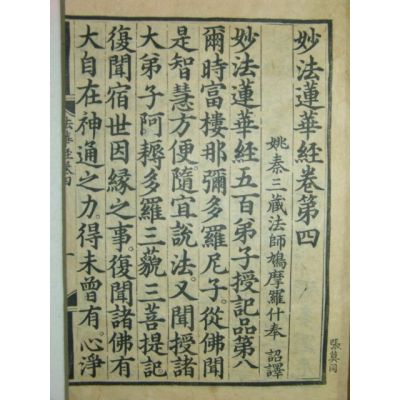 妙法蓮華經卷第四
姚秦三藏法師鳩摩羅什奉 詔譯
妙法蓮華經五百弟子授記品第八
爾時富樓那彌多羅尼子。從佛聞
是智慧方便。隨宜說法。又聞授諸
大弟子阿耨多羅三藐三菩提記
復聞宿世因緣之事。復聞諸佛有
大自在神通之力。得未曾有。心淨